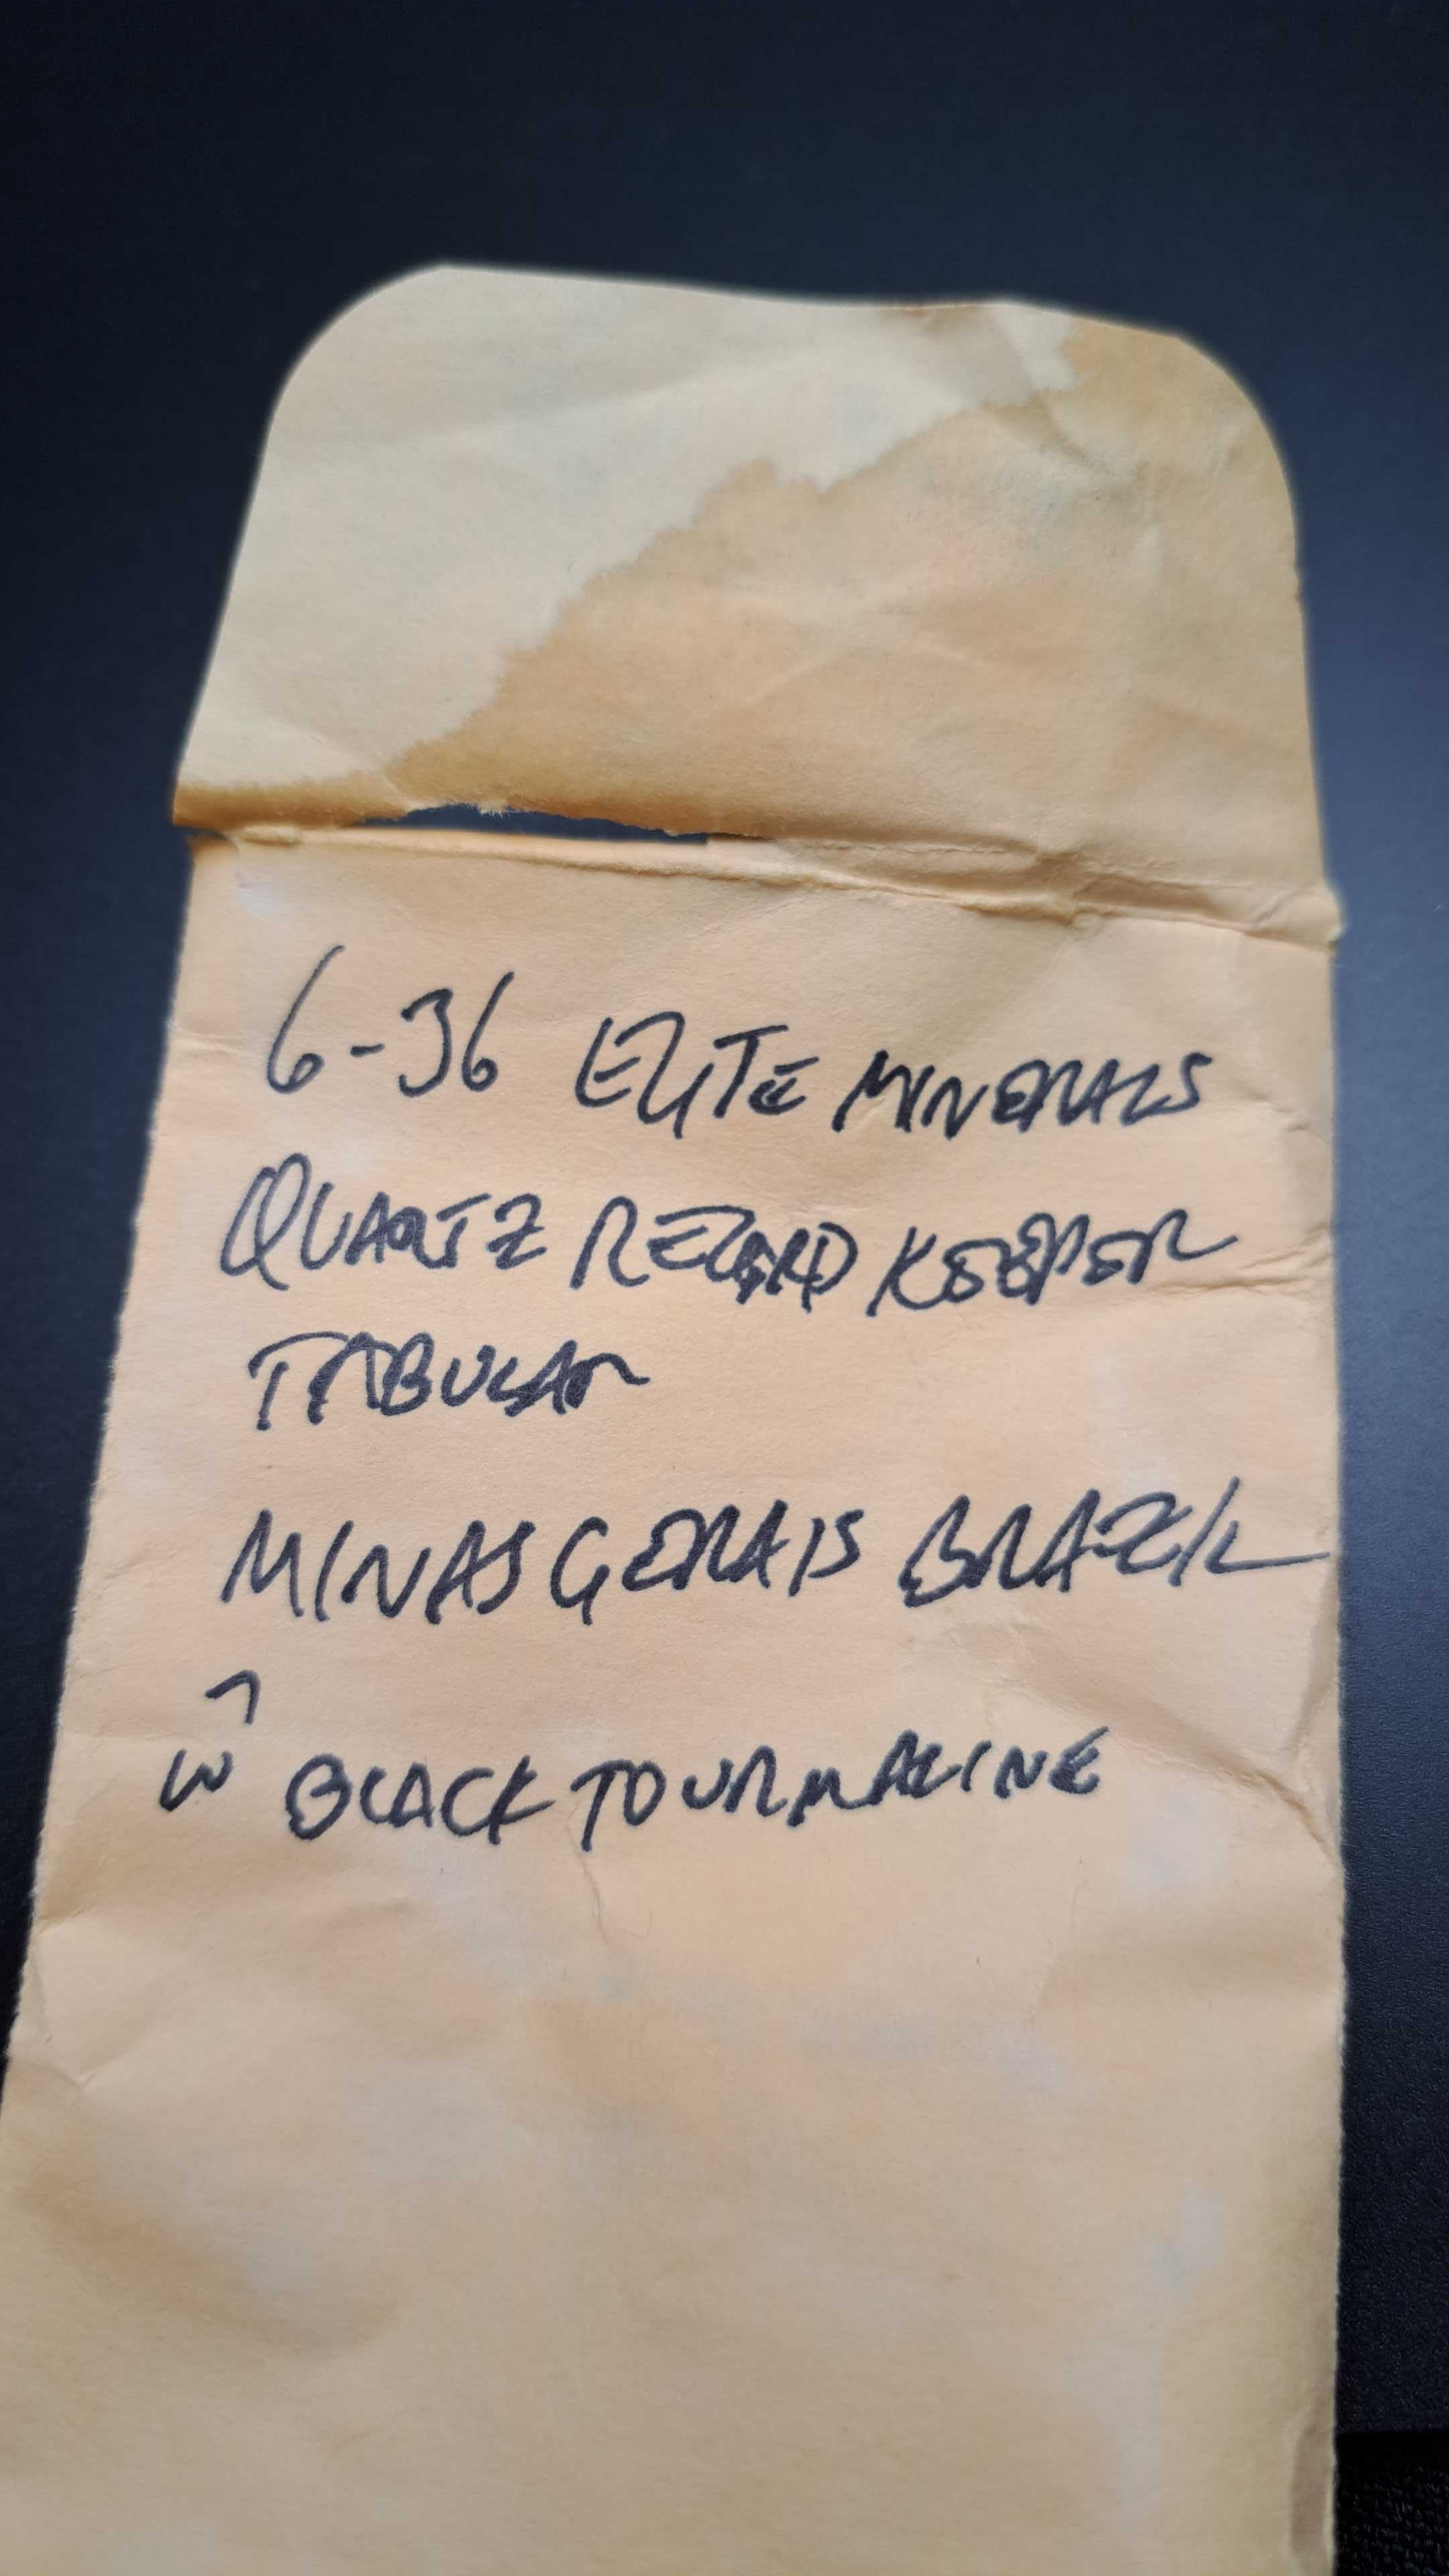 6-36 ELITE MINERALS
QUARTZ RECORD KEEPER
TABULAR
MINAS GERAIS BRAZIL
W BLACK TOURMALINE